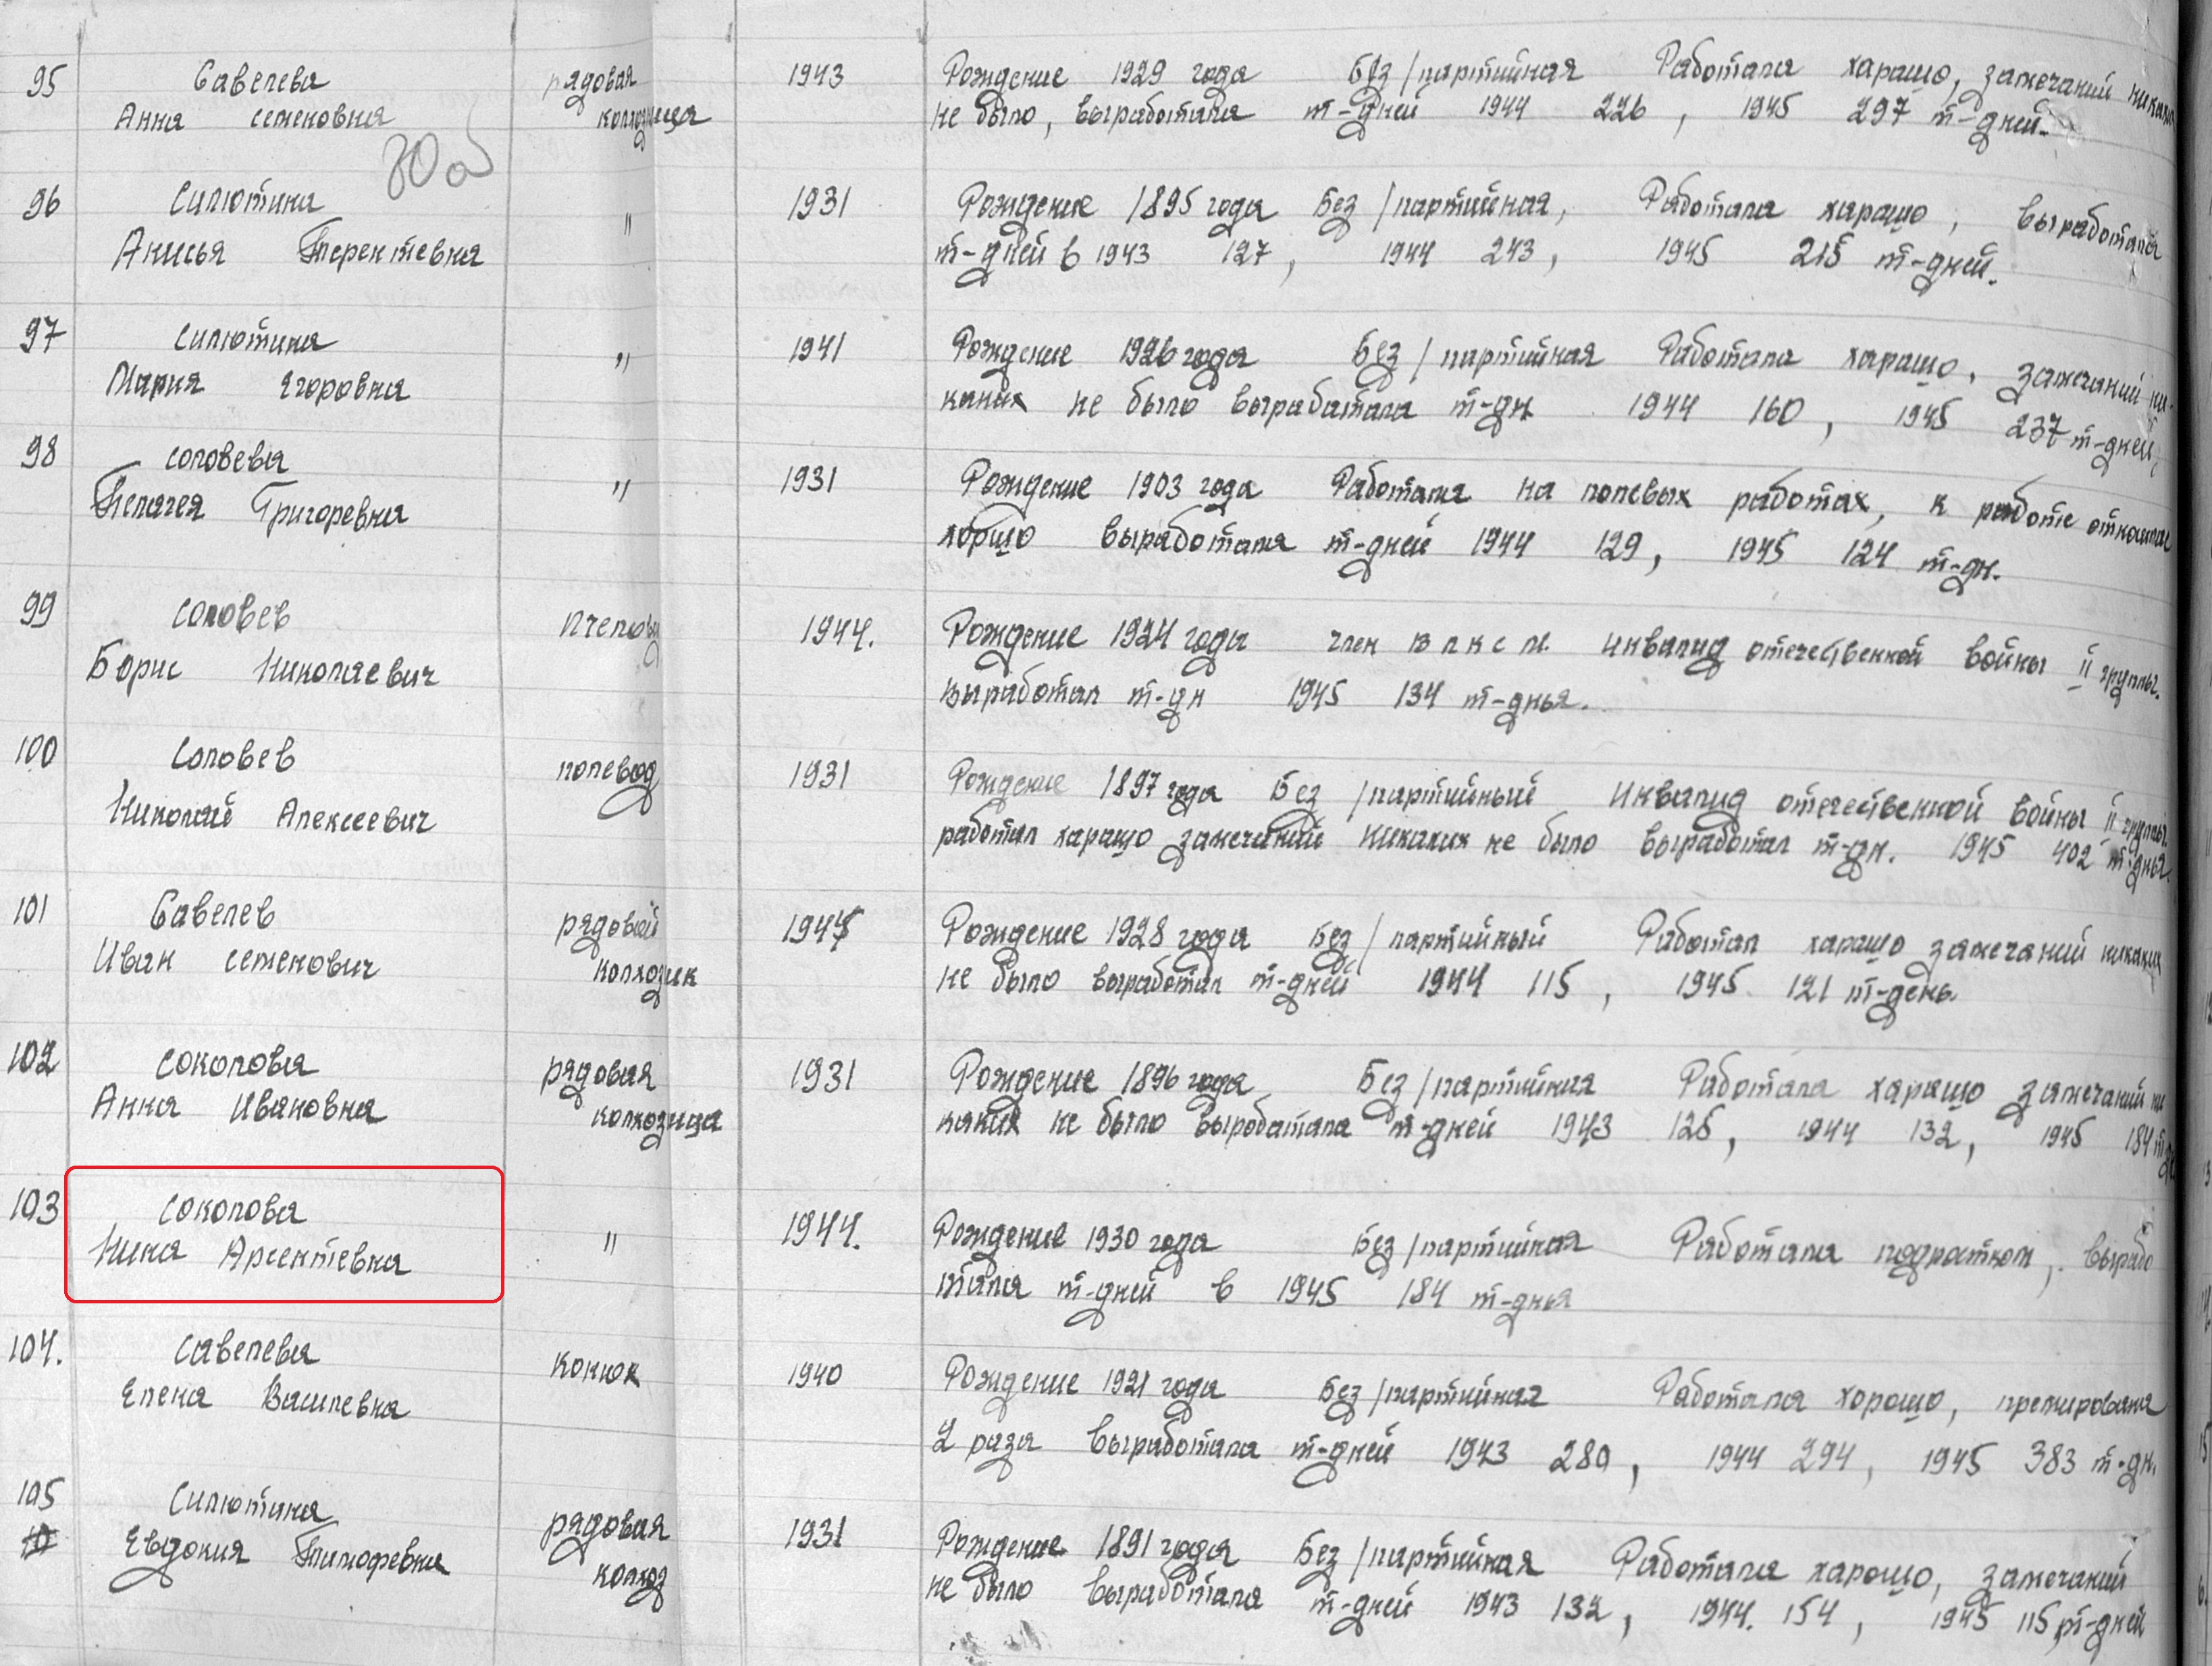 95 Савелева рядовая 1943 Рождение 1929 года Без/партийная Работала харашо, замечаний никаких
Анна семеновна колхозница не было, выработала т-дней 1944 226, 1945 297 т-дней.
80об
96 Силютина " 1931 Рождение 1895 года Без/партийная, Работала харашо, выработала
Анисья Терентевна т-дней в 1943 127, 1944 243, 1945 215 т-дней.
97 Силютина " 1941 Рождение 1926 года Без/партийная Работала харашо, замечаний ни-
Мария Егоровна каких не было вырабатала т-дн 1944 160, 1945 237 т-дней,
98 соловева " 1931 Рождение 1903 года Работала на полевых работах, к работе
Пелагея Григоревна выработала т-дней 1944 129, 1945 124 т-дн.
99 соловев пчеловод 1944. Рождение 1924 года член в л к с м. инвалид отечественной войны II группы.
Борис Николаевич выработал т-дн 1945 134 т-дньа.
100 Соловев полевод 1931 Рождение 1897 года Без/партийный инвалид отечественной войны II группы.
Николай Алексеевич работал харашо замечаний никаких не было выработал т-дн. 1945 402 т-дньа.
101 Савелев рядовой Рождение 1928 года Без/партийный Работал харашо замечаний никаких
Иван семенович колхозник не было выработал т-дней 1944 115, 1945 121 т-день.
102 соколова рядовая 1931 Рождение 1896 года Без/партийная Работала харашо замечаний ни
Анна Ивановна колхозница каких не было выроботала т-дней 1943 125, 1944 132, 1945 184
103 соколова " 1944. Рождение 1930 года Без/партийная Работала подратком, вырабо
Нина Арсентевна тала т-дней в 1945 184 т-дньа
104. савелева конюх 1940 Рождение 1921 года Без/партийная Работала хорошо, премирована
Елена Василевна 2 раза выработала т-дней 1943 280, 1944 294, 1945 383 т-дн.
105 Силютина рядовая 1931 Рождение 1891 года Без/партийная Работала харошо, замечаний
Евдокия Тимофевна колхоз не было выработала т-дней 1943 132, 1944. 154, 1945 115 т-дней